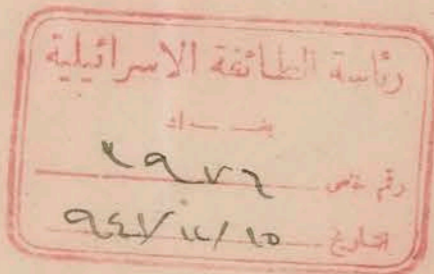 رئاسة الطائفة الاسرائيلية
بغـــداد
رقم ٢٩٧٦
التاريخ ١٥/١٢/٩٤٧